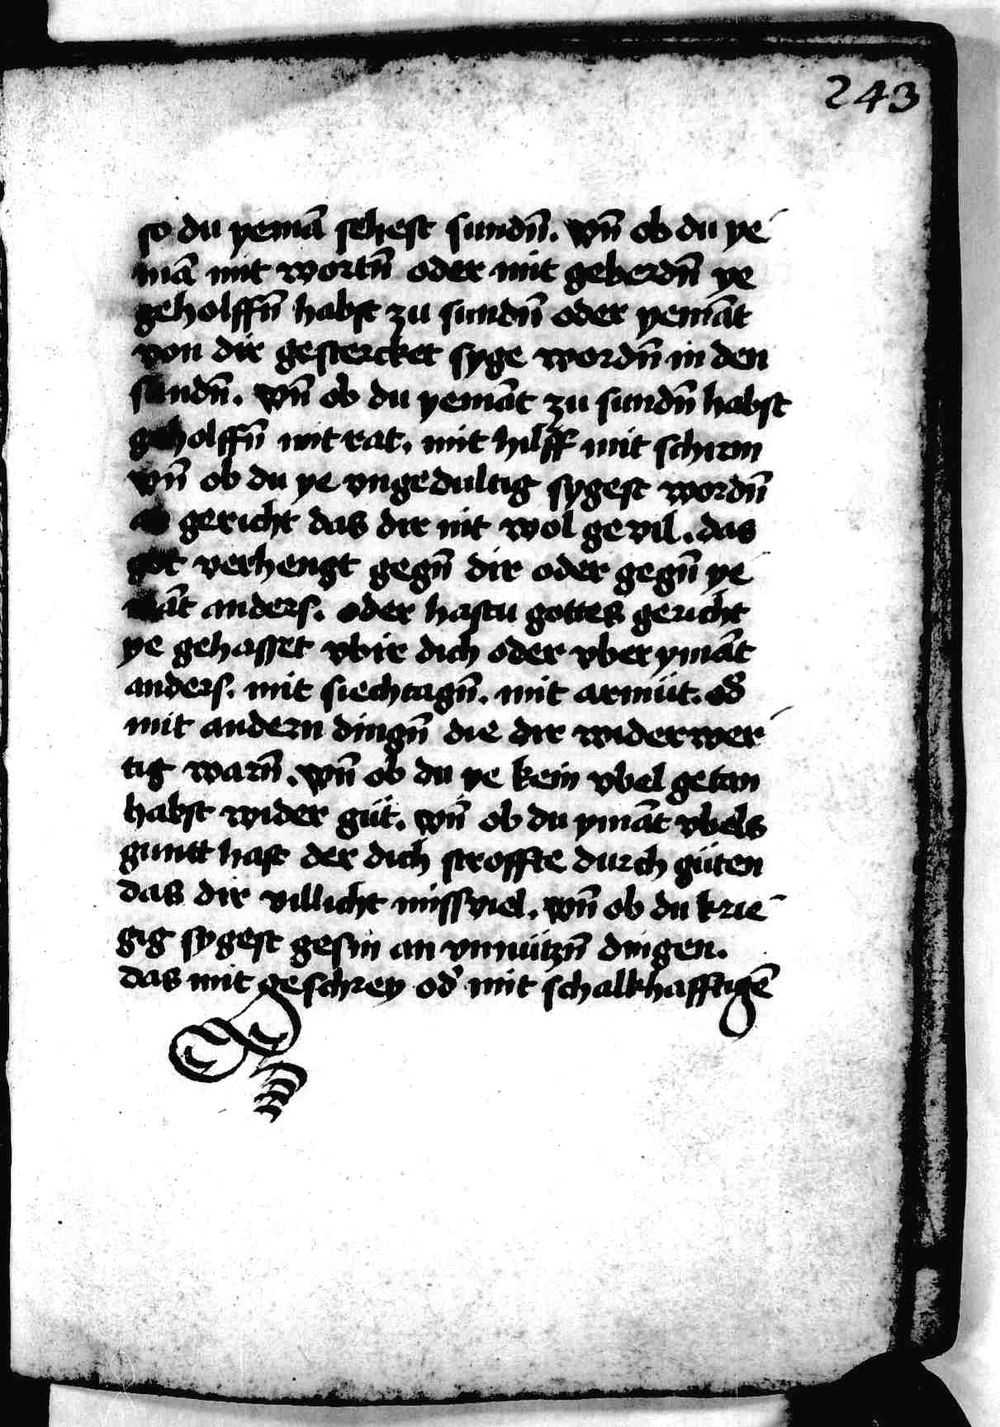 243
so du yemā sehest sundn̄. vn̄ ob du ye
mā mit wortn̄ oder mit geberdn̄ ye
geholffn̄ habst zu sundn̄ oder yemāt
von dir gestercket syge wordn̄ in den
sundn̄. vn̄ ob du yemāt zu sundn̄ habst
geholffn̄ mit rat. mit hilff mit schirm
vn̄ ob du ye vngedultig sygest wordn̄
gericht das dir nit wol gevil. das
got verhengt gegn̄ dir oder gegn̄ ye
māt anders. oder hastu gottes gericht
ye gehasset vbir dich oder vber ymāt
anders. mit siechtagn̄. mit armüt. od̄
mit andern dingn̄ die dir widerwer
tig warn̄. vn̄ ob du ye kein vbel getan
habst wider güt. vn̄ ob du ymāt vbels
guntt hast der dich stroffte durch güten
das dir villicht missviel. vn̄ ob du krie
gig sygest gesin an vnnützn̄ dingen.
das mit geschrey od̄ mit schalkhafftigē